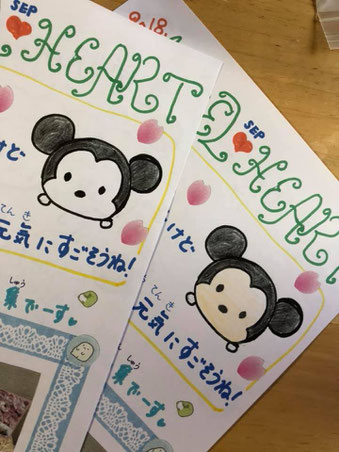 SEP
HEART
けど
てんき
元気にすごそうね!
しゅう
集でーす
9.18.
SEP
HEART
けど
てんき
元気にすごそうね!
しゅう
集でーす